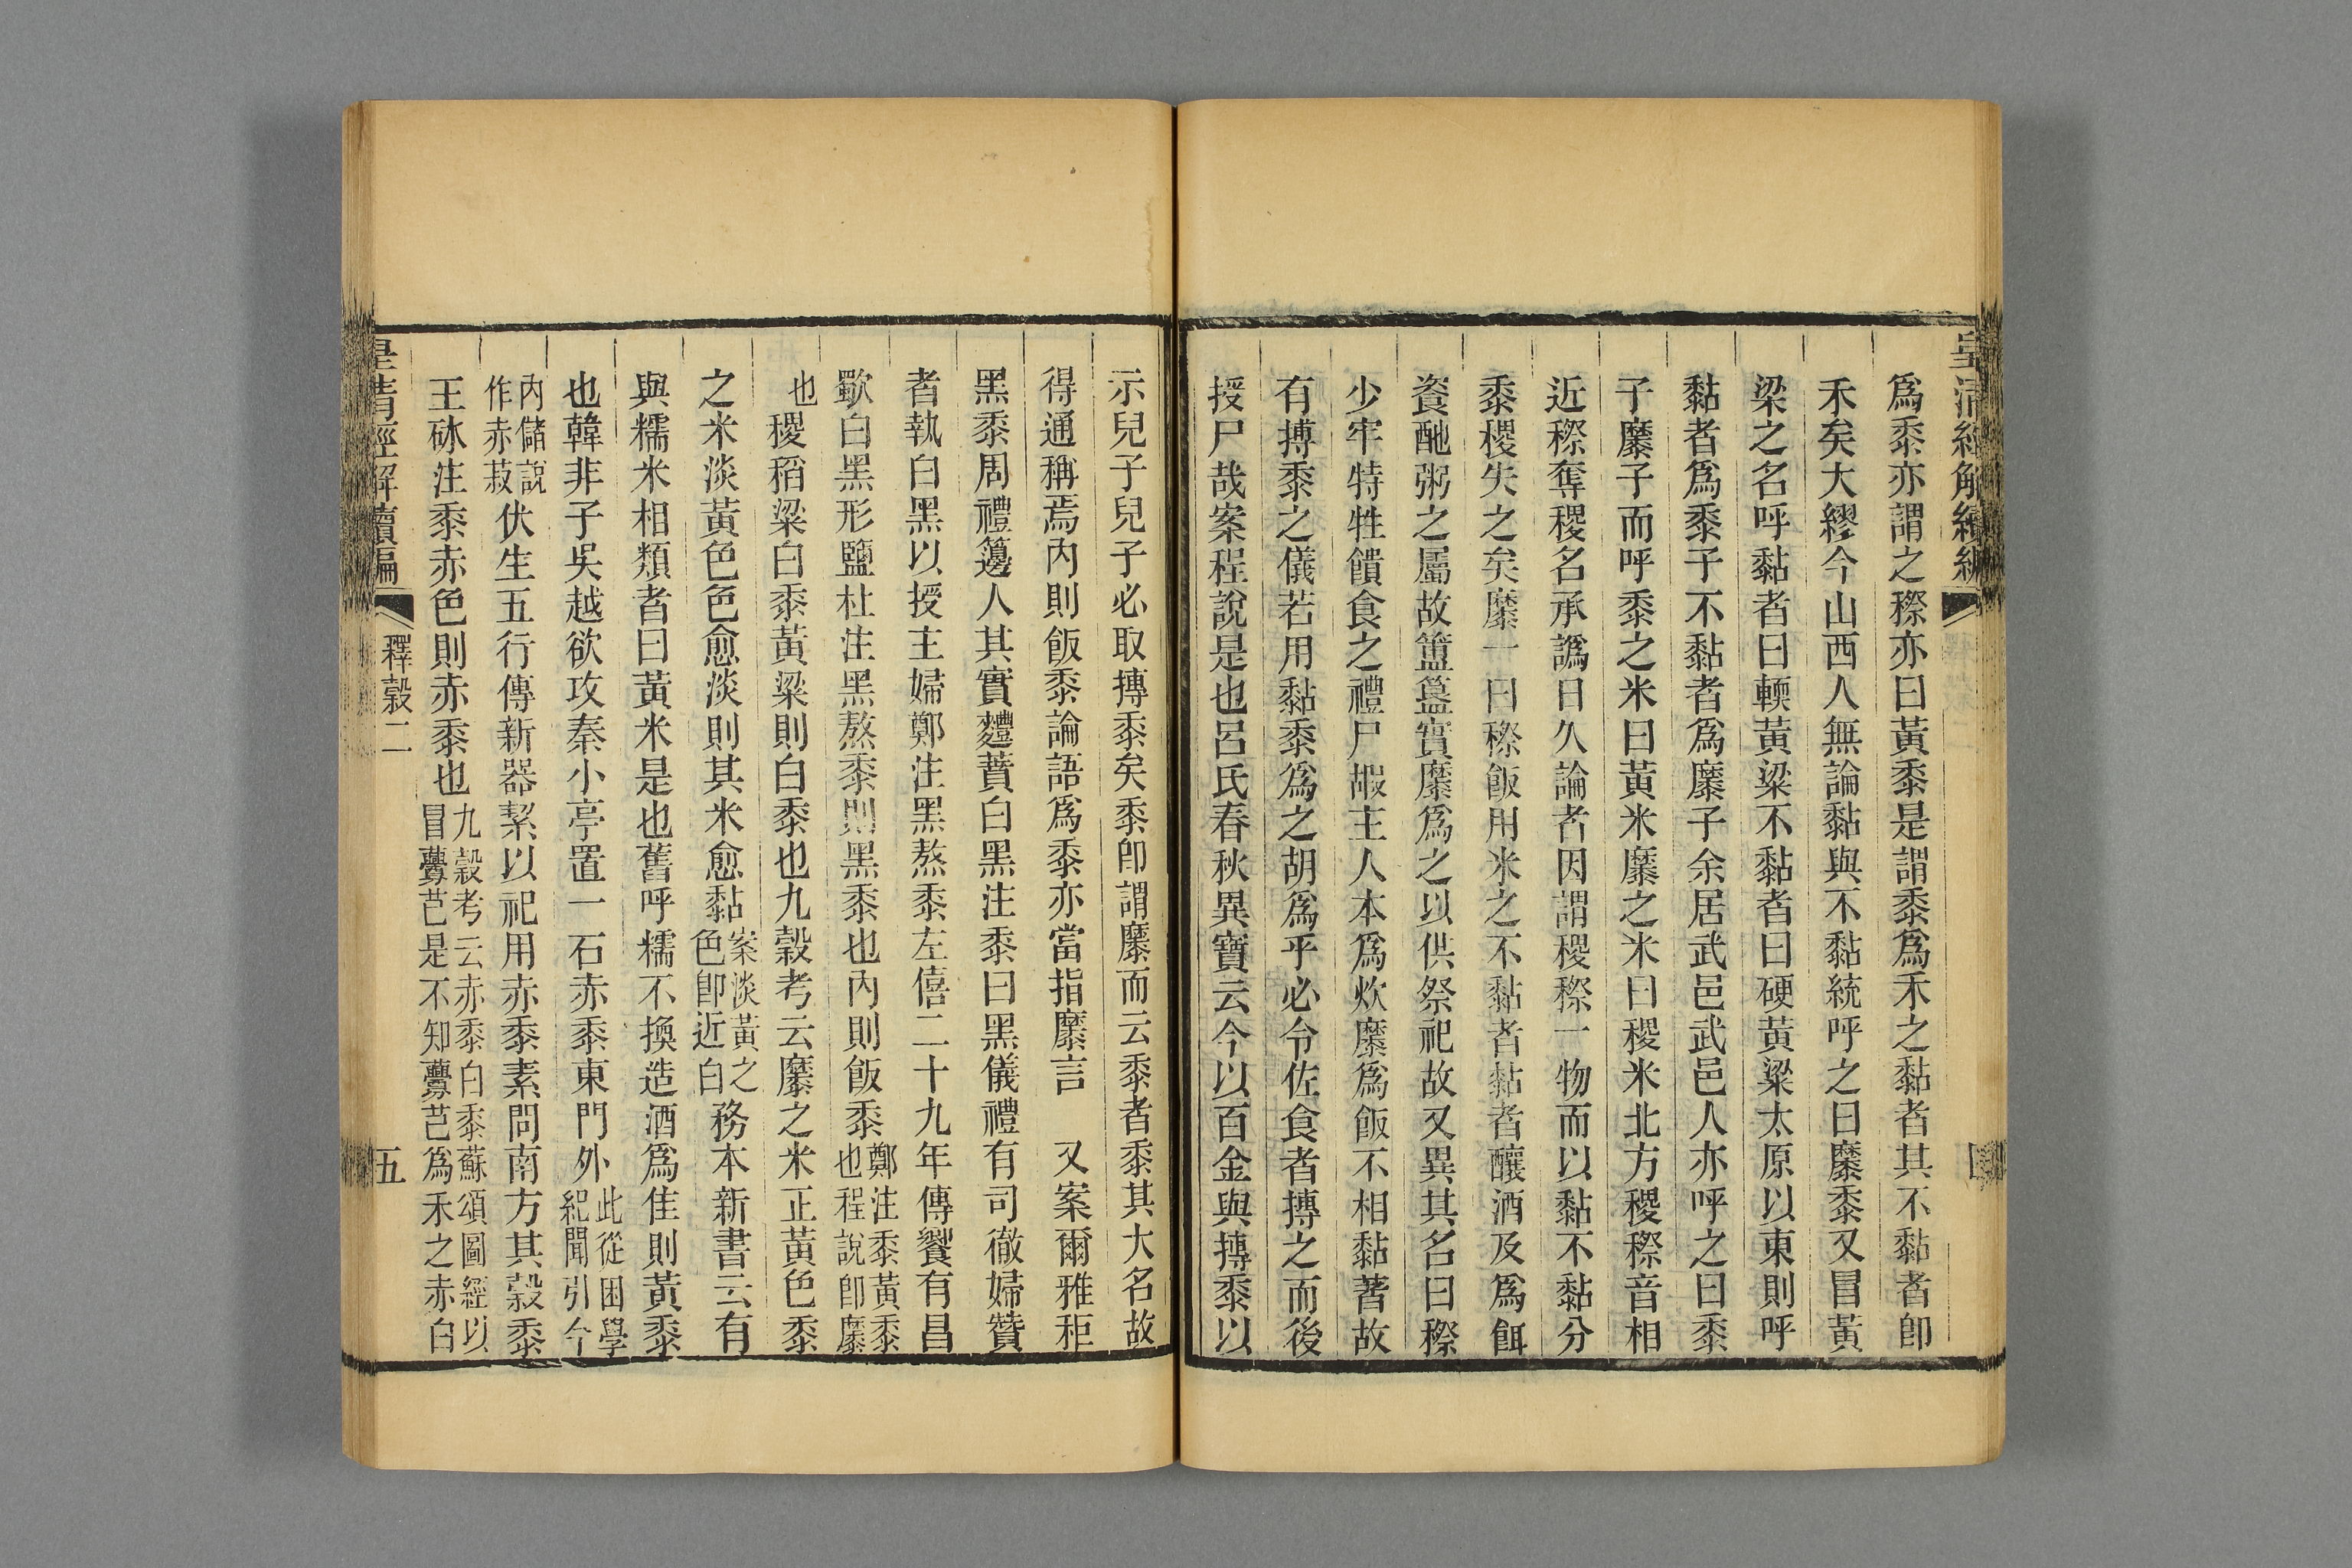 皇清經解續編
爲黍亦謂之穄亦曰黃黍是謂黍爲禾之黏者其不黏者卽
禾矣大繆今山西人無論黏與不黏統呼之曰穈黍又冒黃
梁之名呼黏者曰輭黃梁不黏者曰硬黃梁太原以東則呼
黏者爲黍子不黏者爲穈子余居武邑武邑人亦呼之曰黍
子穈子而呼黍之米曰黃米穈之米曰稷米北方稷穄音相
近穄奪稷名承譌日久論者因謂稷穄一物而以黏不黏分
黍稷失之矣穈一曰穄飯用米之不黏者黏者釀酒及爲餌
餈酏粥之屬故簠簋實穈爲之以供祭祀故又異其名曰穄
少牢特牲饋食之禮尸嘏主人本爲炊穈爲飯不相黏著故
有摶黍之儀若用黏黍爲之胡爲乎必令佐食者摶之而後
授尸哉案程說是也呂氏春秋異寶云今以百金與摶黍以
示兒子兒子必取摶黍矣黍卽謂穈而云黍者黍其大名故
得通稱焉內則飯黍論語爲黍亦當指穈言　又案爾雅秬
黑黍周禮籩人其實麷蕡白黑注黍曰黑儀禮有司徹婦贊
者執白黑以授主婦鄭注黑熬黍左僖二十九年傳饗有昌
歜白黑形鹽杜注黑熬黍則黑黍也內則飯黍鄭注黍黃黍
也程說卽穈
也稷稻粱白黍黃粱則白黍也九穀考云穈之米正黃色黍
之米淡黃色色愈淡則其米愈黏案淡黃之
色卽近白務本新書云有
與糯米相類者曰黃米是也舊呼糯不換造酒爲佳則黃黍
也韓非子吳越欲攻秦小亭置一石赤黍東門外此從困學
紀聞引今
內儲說
作赤菽伏生五行傳新器絜以祀用赤黍素問南方其穀黍
王砅注黍赤色則赤黍也九穀考云赤黍白黍蘇頌圖經以
冒虋芑是不知虋芑爲禾之赤白
皇清經解續編　釋穀二　五